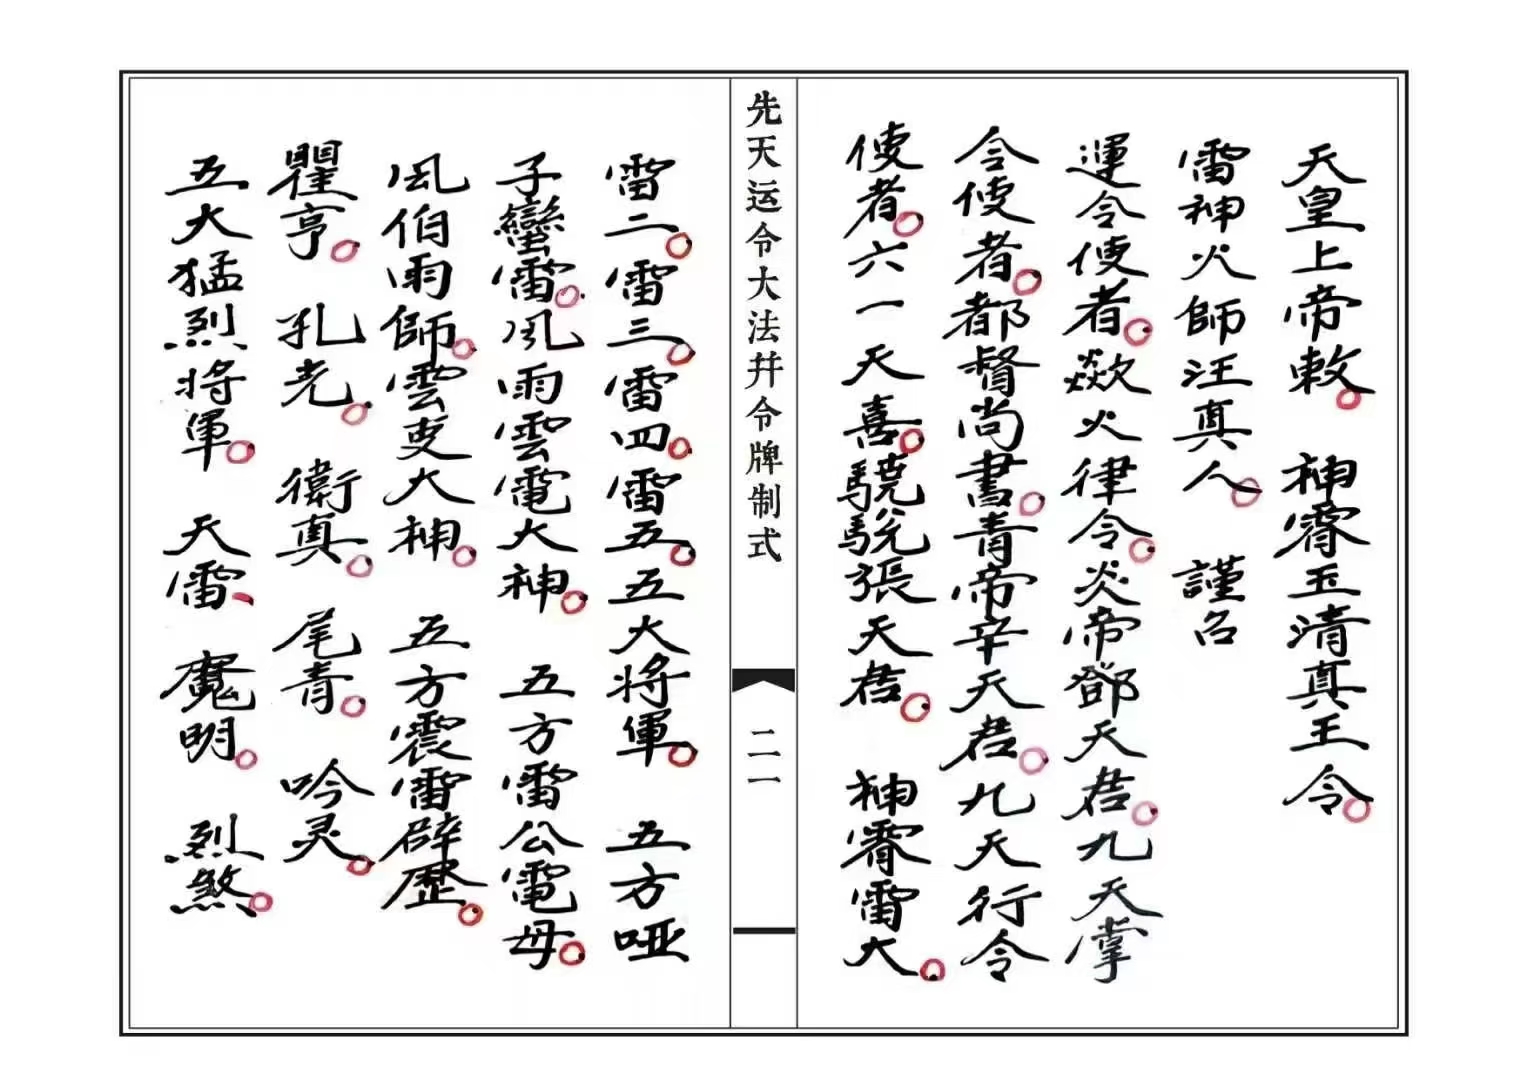 天皇上帝敕。神霄玉清真王令。
雷神火師汪真人。謹召
運令使者。歘火律令。炎帝鄧天君。九天掌
令使者。都督尚書。青帝辛天君。九天行令
使者。六一天喜。驍駾張天君。神霄雷大。
先天运令大法并令牌制式
二一
雷二。雷三。雷四。雷五。五大将軍。五方哑
子蠻雷。風雨雲電大神。五方雷公電母。
風伯雨師。雲吏大神。五方震雷霹歷。
瞿亨。孔光。衛真。尾青。吟灵。
五大猛烈将軍。天雷、魔明。烈煞。